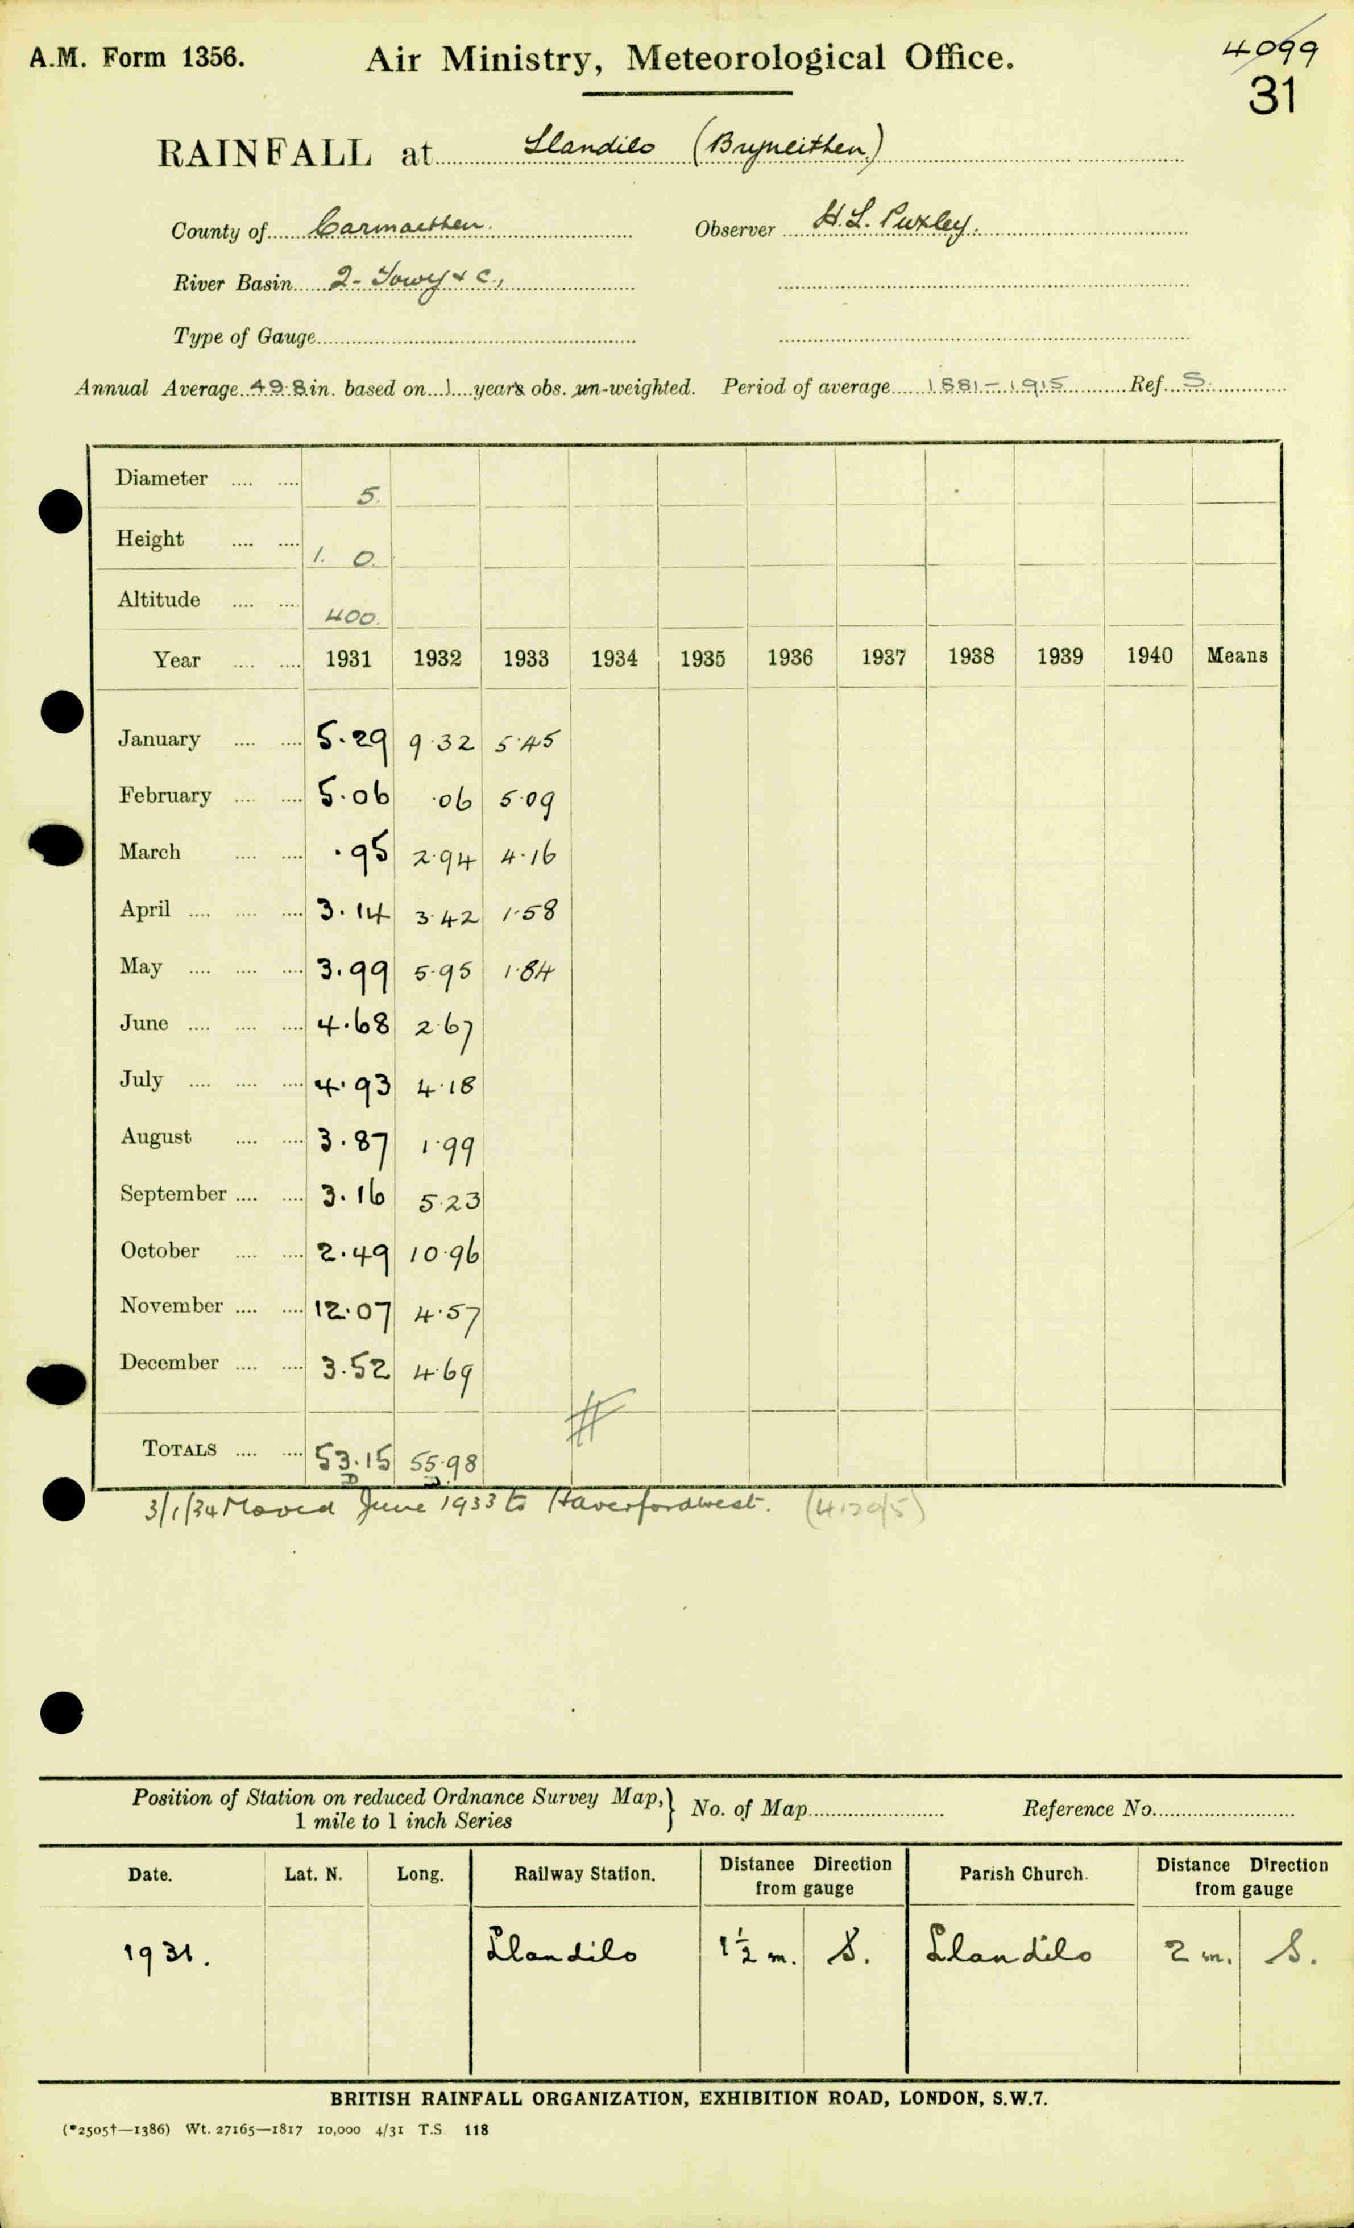 A.M. Form 1356.
Air Ministry, Meteorological Office.
4099
31
RAINFALL at Llandilo (Bryneithen)
County of Carmarthen. Observer H.L. Puxley.
River Basin 2- Towy & C.,
Type of Gauge
Annual Average 49.8 in. based on 1 years obs. un-weighted. Period of average 1881-1915 Ref. S.
Diameter 5.
Height 1. 0.
Altitude 400.
Year 1931 1932 1933 1934 1935 1936 1937 1938 1939 1940 Means
January 5.29 9.32 5.45
February 5.06 .06 5.09
March .95 2.94 4.16
April 3.14 3.42 1.58
May 3.99 5.95 1.84
June 4.68 2.67
July 4.93 4.18
August 3.87 1.99
September 3.16 5.23
October 2.49 10.96
November 12.07 4.57
December 3.52 4.69
TOTALS 53.15 55.98
D D.
3/1/34 Moved June 1933 to Haverfordwest. (4120/5)
Position of Station on reduced Ordnance Survey Map, } No. of Map Reference No.
1 mile to 1 inch Series
Date. Lat. N. Long. Railway Station. Distance Direction from gauge Parish Church. Distance Direction from gauge
1931. Llandilo 1½ m. S. Llandilo 2 m. S.
BRITISH RAINFALL ORGANIZATION, EXHIBITION ROAD, LONDON, S.W.7.
(*2505†—1386) Wt. 27165—1817 10,000 4/31 T.S 118